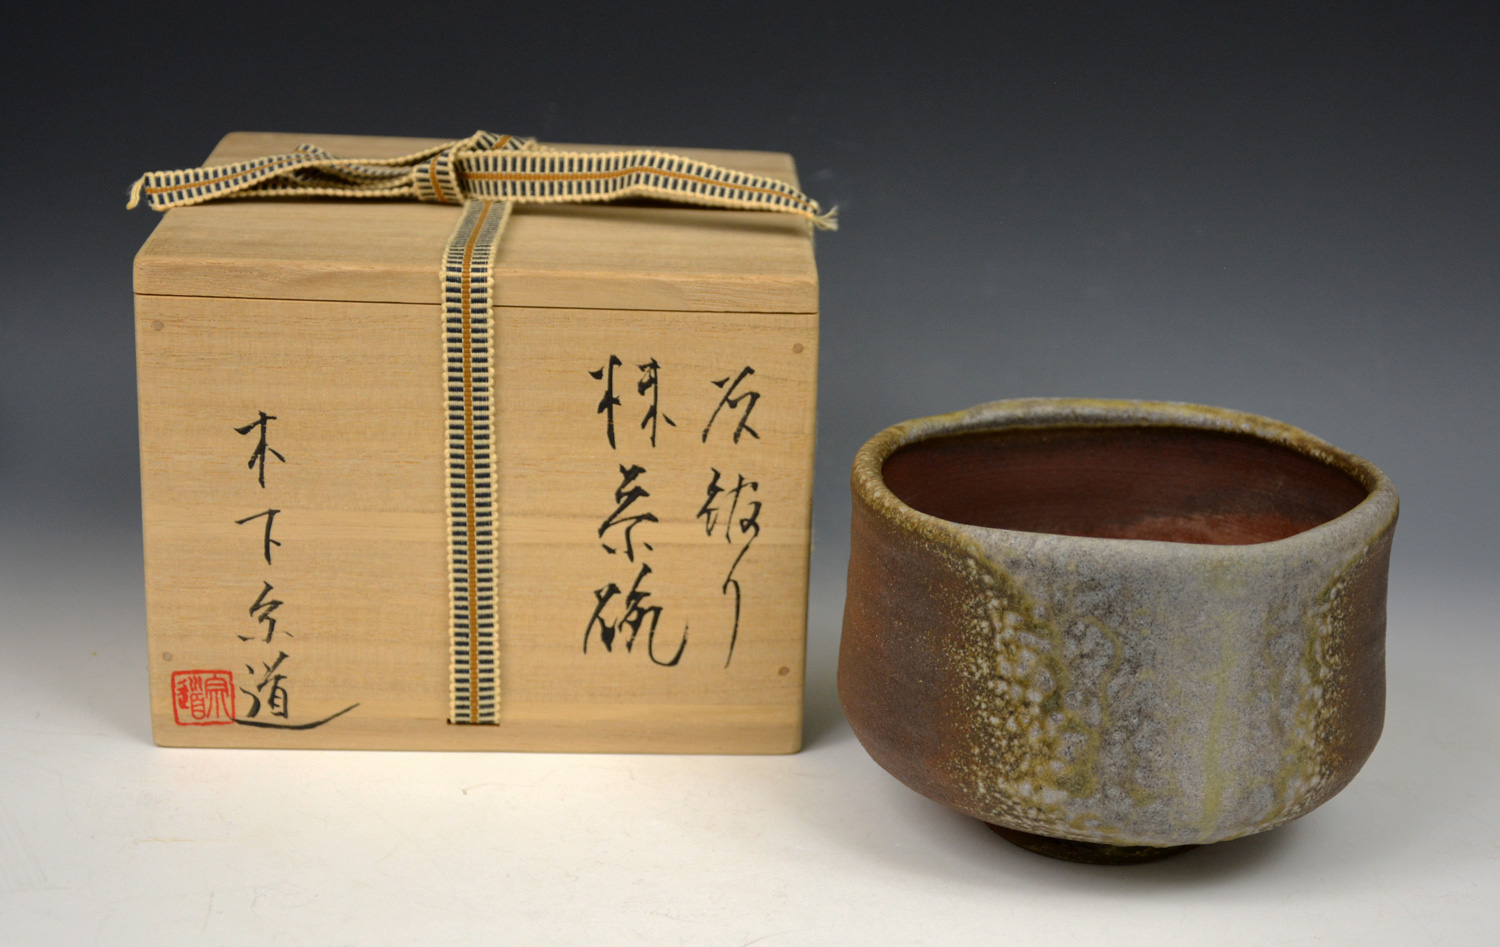 灰被り
粖茶碗
木下宗道
宗道